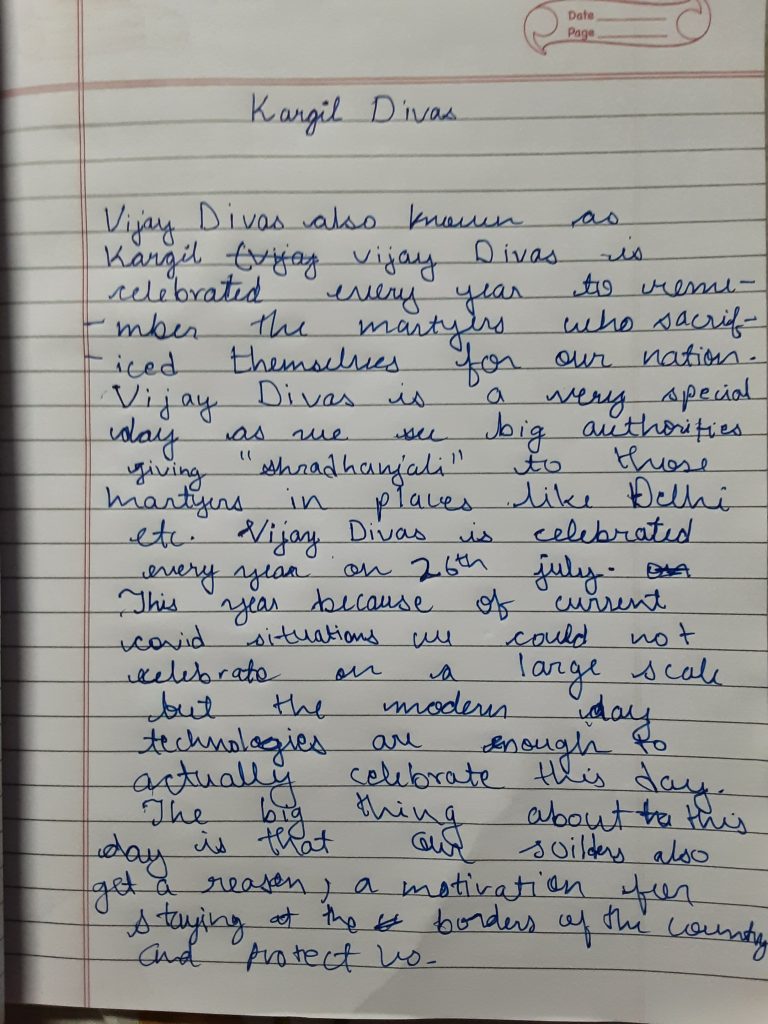 Date
Page
Kargil Divas
Vijay Divas also known as
Kargil (vijay vijay Divas is
celebrated every year to reme-
-mber the martyers who sacrif-
-iced themselves for our nation.
Vijay Divas is a very special
day as we see big authorities
giving "shradhanjali" to those
martyers in places like Delhi
etc. Vijay Divas is celebrated
every year on 26th july.
This year because of current
covid situations we could not
celebrate on a large scale
but the modern day
technologies are enough to
actually celebrate this day.
The big thing about this
day is that our soilders also
get a reason, a motivation for
staying at the borders of the country
and protect us.